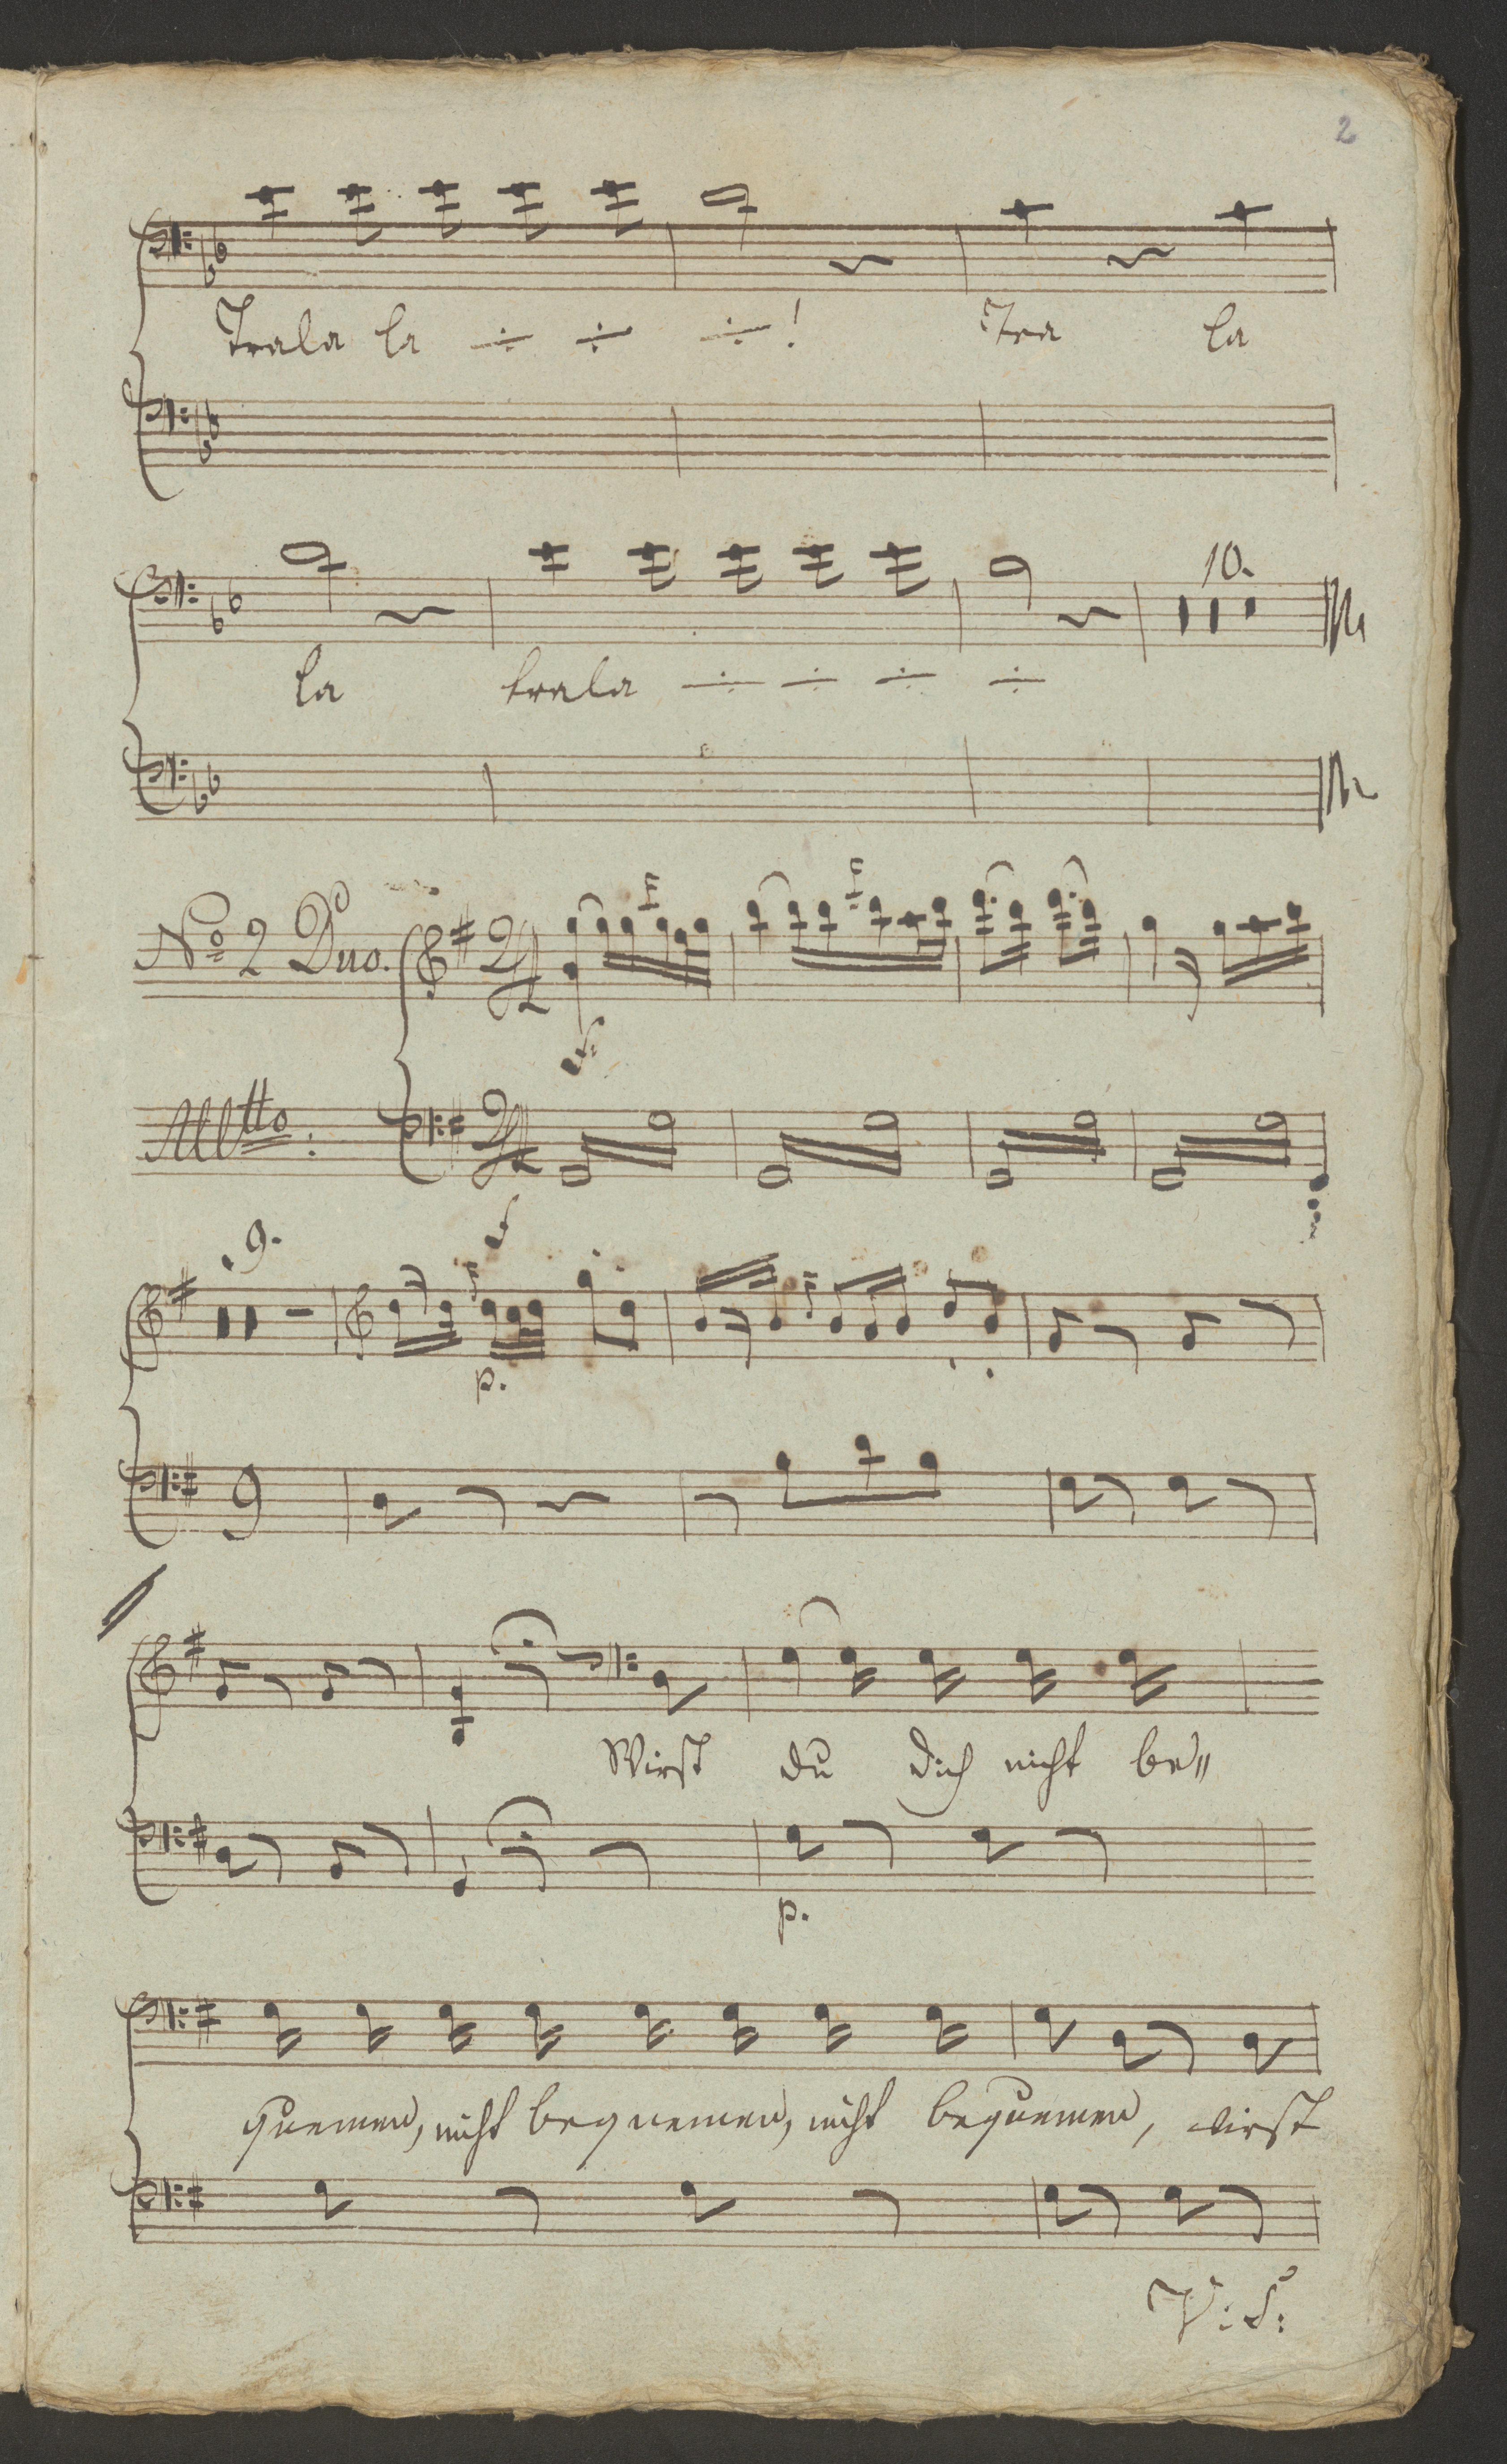 2
Trala la ÷ ÷ ÷! Tra la
10.
la trala ÷ ÷ ÷ ÷
No 2 Duo. 2/4
f
Alltto: 2/4
f
9.
p.
Wirst du dich nicht be〃
p.
quemen, nicht bequemen, nicht bequemen, wirst
V: S: